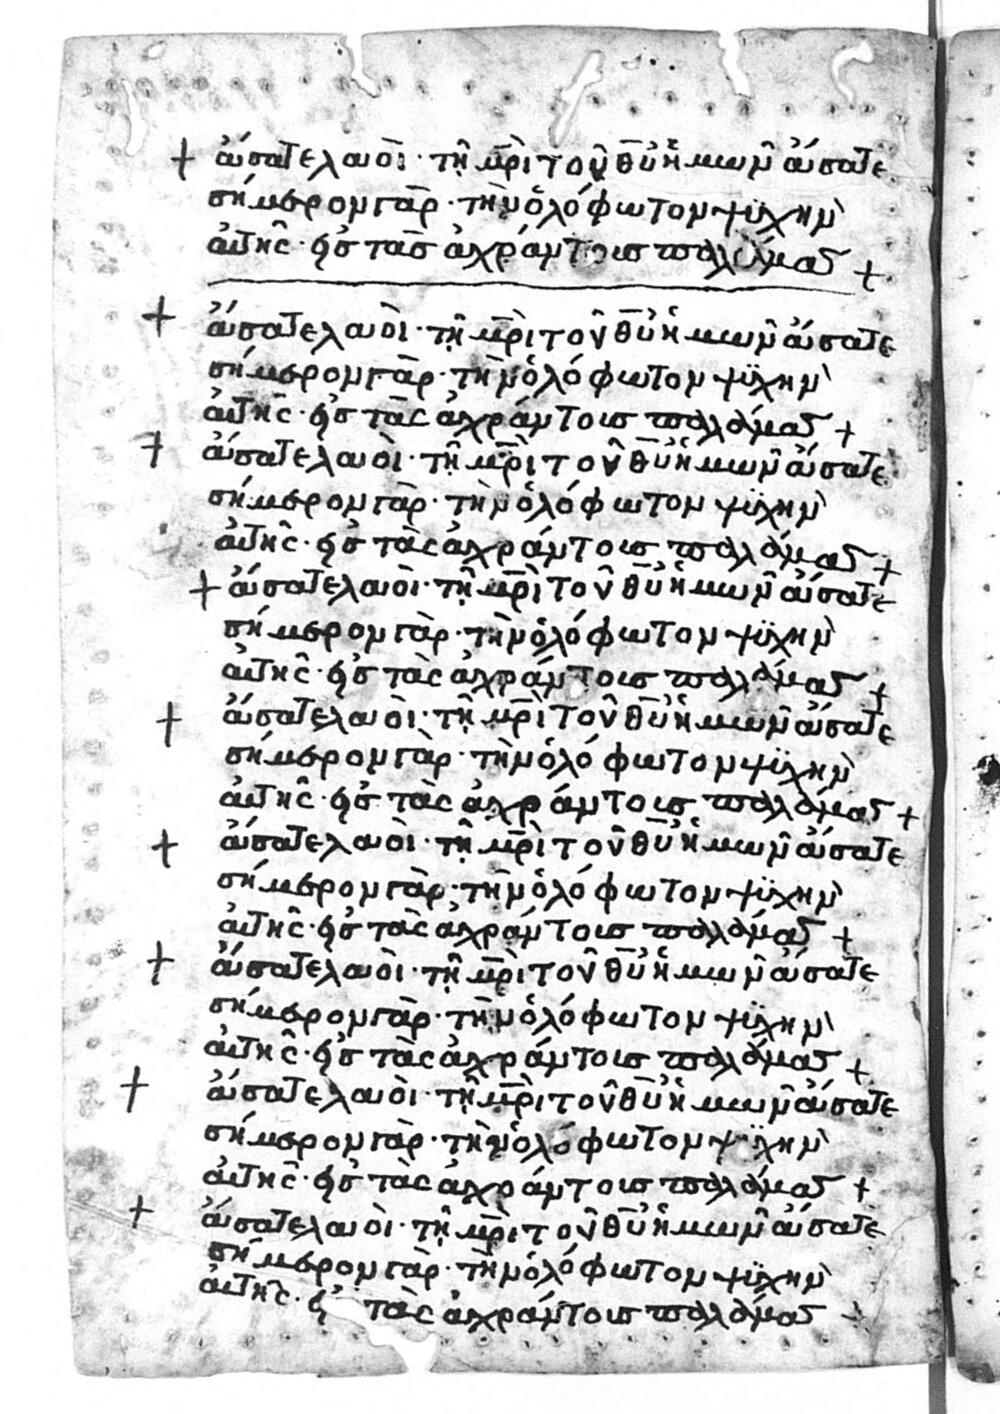 + ἄσατε λαοὶ · τῇ μ̅ρ̅ὶ τοῦ θ̅υ̅ ἡμῶν ἄσατε
σήμερον γὰρ · τὴν ὁλόφωτον ψϋχὴν
ἀυτῆς · εἰς τὰς ἀχράντοις παλάμας +
+ ἄσατε λαοὶ · τῇ μ̅ρ̅ὶ τοῦ θ̅υ̅ ἡμῶν ἄσατε
σήμερον γὰρ · τὴν ὁλόφωτον ψϋχὴν
ἀυτῆς · εἰς τὰς ἀχράντοις παλάμας +
+ ἄσατε λαοὶ · τῇ μ̅ρ̅ὶ τοῦ θ̅υ̅ ἡμῶν ἄσατε
σήμερον γὰρ · τὴν ὁλόφωτον ψϋχὴν
ἀυτῆς · εἰς τὰς ἀχράντοις παλάμας +
+ ἄσατε λαοὶ · τῇ μ̅ρ̅ὶ τοῦ θ̅υ̅ ἡμῶν ἄσατε
σήμερον γὰρ · τὴν ὁλόφωτον ψϋχὴν
ἀυτῆς · εἰς τὰς ἀχράντοις παλάμας +
+ ἄσατε λαοὶ · τῇ μ̅ρ̅ὶ τοῦ θ̅υ̅ ἡμῶν ἄσατε
σήμερον γὰρ · τὴν ὁλόφωτον ψϋχὴν
ἀυτῆς · εἰς τὰς ἀχράντοις παλάμας +
+ ἄσατε λαοὶ · τῇ μ̅ρ̅ὶ τοῦ θ̅υ̅ ἡμῶν ἄσατε
σήμερον γὰρ · τὴν ὁλόφωτον ψϋχὴν
ἀυτῆς · εἰς τὰς ἀχράντοις παλάμας +
+ ἄσατε λαοὶ · τῇ μ̅ρ̅ὶ τοῦ θ̅υ̅ ἡμῶν ἄσατε
σήμερον γὰρ · τὴν ὁλόφωτον ψϋχὴν
ἀυτῆς · εἰς τὰς ἀχράντοις παλάμας +
+ ἄσατε λαοὶ · τῇ μ̅ρ̅ὶ τοῦ θ̅υ̅ ἡμῶν ἄσατε
σήμερον γὰρ · τὴν ὁλόφωτον ψϋχὴν
ἀυτῆς · εἰς τὰς ἀχράντοις παλάμας +
+ ἄσατε λαοὶ · τῇ μ̅ρ̅ὶ τοῦ θ̅υ̅ ἡμῶν ἄσατε
σήμερον γὰρ · τὴν ὁλόφωτον ψϋχὴν
ἀυτῆς · εἰς τὰς ἀχράντοις παλάμας